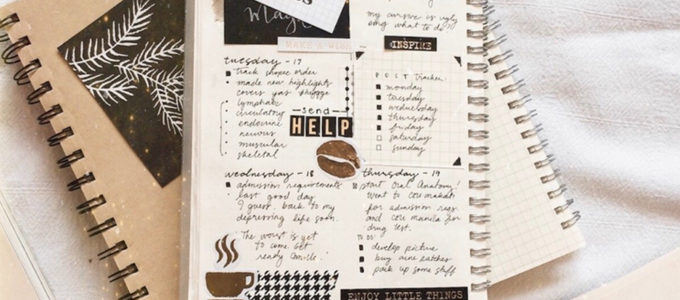 magic
MAKE A WISH
tuesday - 17
track shopee order
made new highlights
covers
lymphatic
circulatory
endocrine
nervous
muscular
skeletal
send
HELP
wednesday - 18
admission requirements
last good day
I guess. back to my
depressing life soon.
The worst is yet
to come. Get
ready
my cursive is ugly
omg what to do?
INSPIRE
POST tracker:
monday
tuesday
wednesday
thursday
friday
saturday
sunday
thursday - 19
start Oral Anatomy!
went to
for admission reqs
and manila for
drug test.
TO DO:
develop picture
buy
pack up some stuff
ENJOY LITTLE THINGS